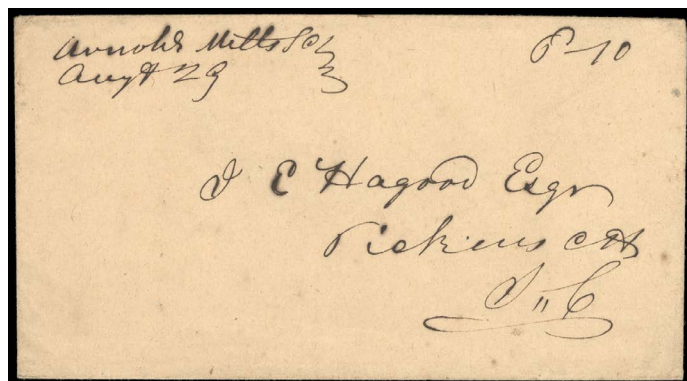 Arnolds Mills SC
Augt 29
P-10
J E Hagood Esqr
Pickens CH
S"C